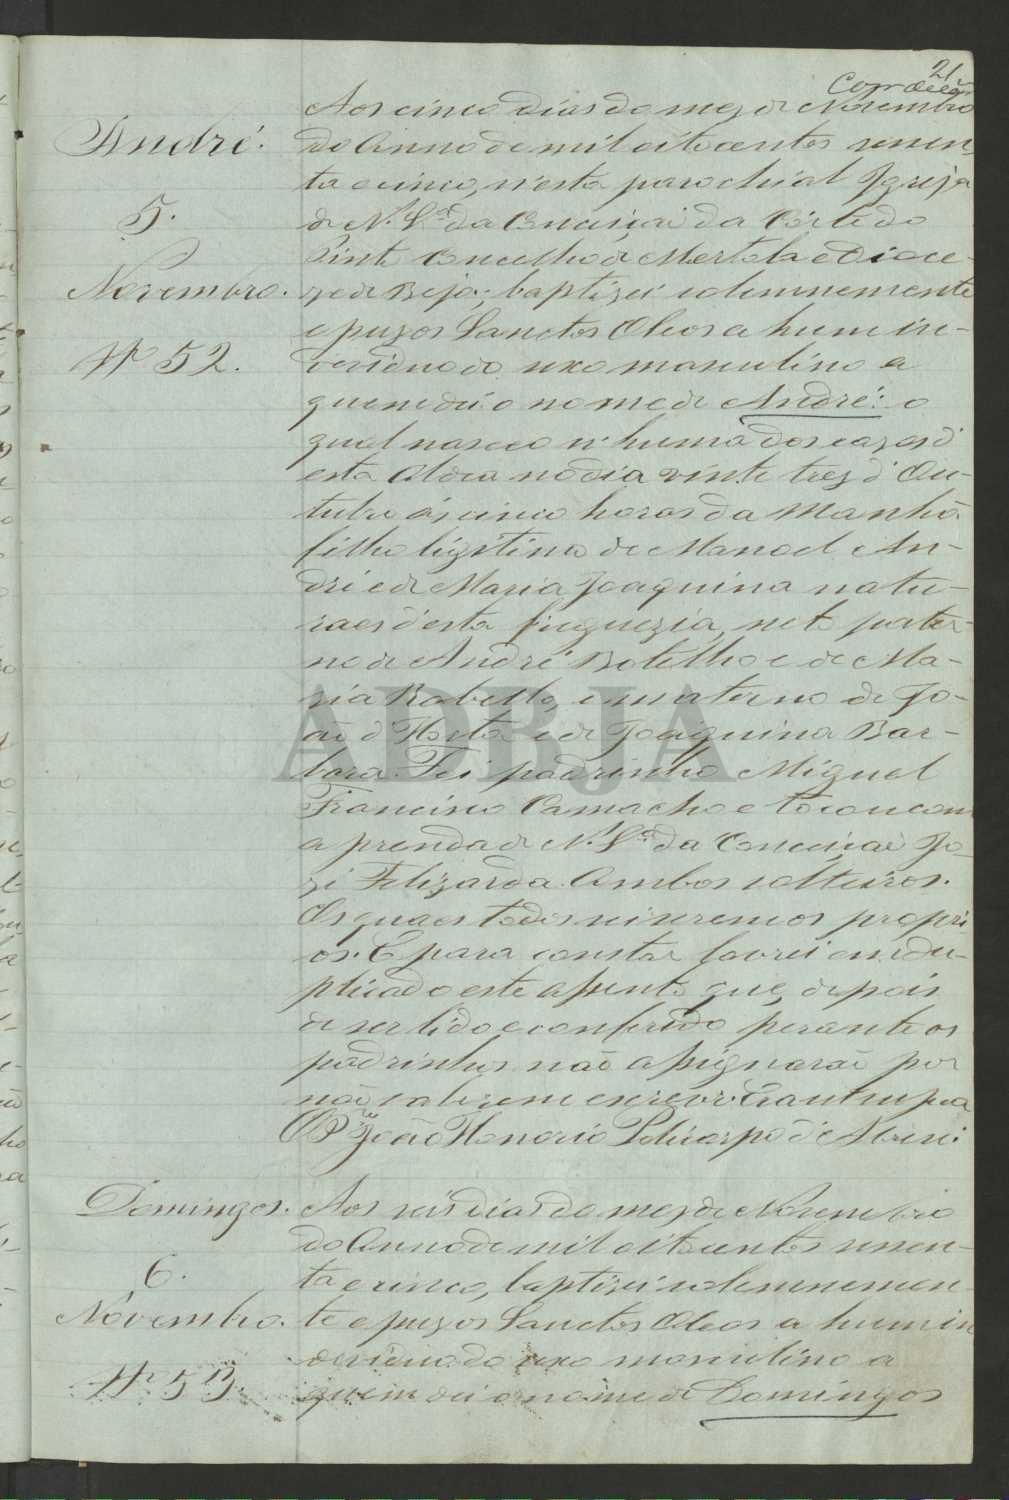 21
André.
5.
Novembro.
Nº 52.
Aos cinco dias do mez de Novembro
do Anno de mil oitocentos sessen-
ta e cinco, n'esta parochial Igreja
de N. Sr.ª da Conceição da Corte do
Pinto Concelho de Mertola e Dioce-
ze de Beja; baptizei solemnemente
e puz os Sanctos Oleos a hum in-
dividuo do sexo masculino a
quem dei o nome de André: o
qual nasceo n'huma das cazas d'
esta Aldea no dia vinte tres d'Ou-
tubro ás cinco horas da Manhã.
filho ligitimo de Manoel An-
dré e de Maria Joaquina natu-
raes d'esta freguezia, neto pater-
no de André Botelho e de Ma-
ria Rabello, e materno de Jo-
aõ d'Horta e de Joaquina Bar-
bara. Foi padrinho Miguel
Francisco Camacho e tocou com
a prenda de N. Sr.ª da Conceiçaõ Jo-
zé Felizarda. Ambos solteiros.
Os quaes todos sei serem os propri-
os. E para constar lavrei em du-
plicado este assento que, depois
de ser lido e conferido perante os
padrinhos naõ assignaraõ por
naõ saberem escrever. Era ut supra
O P.e João Honorio Policarpo d'
Domingos.
6.
Novembro.
Nº 53.
Aos seis dias do mez de Novembro
do Anno de mil oitocentos sessen-
ta e cinco, baptizei solemnemen-
te e puz os Sanctos Oleos a hum in
dividuo do sexo masculino a
quem dei o nome de Domingos
ADBJA